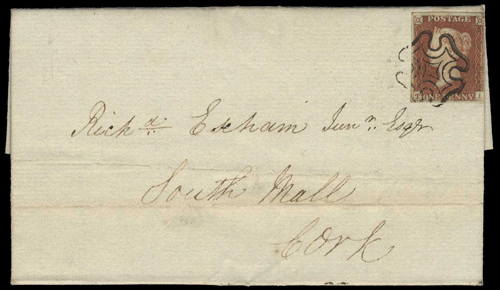 POSTAGE
ONE PENNY
Richd. Exham Junr. Esqr
South Mall
Cork